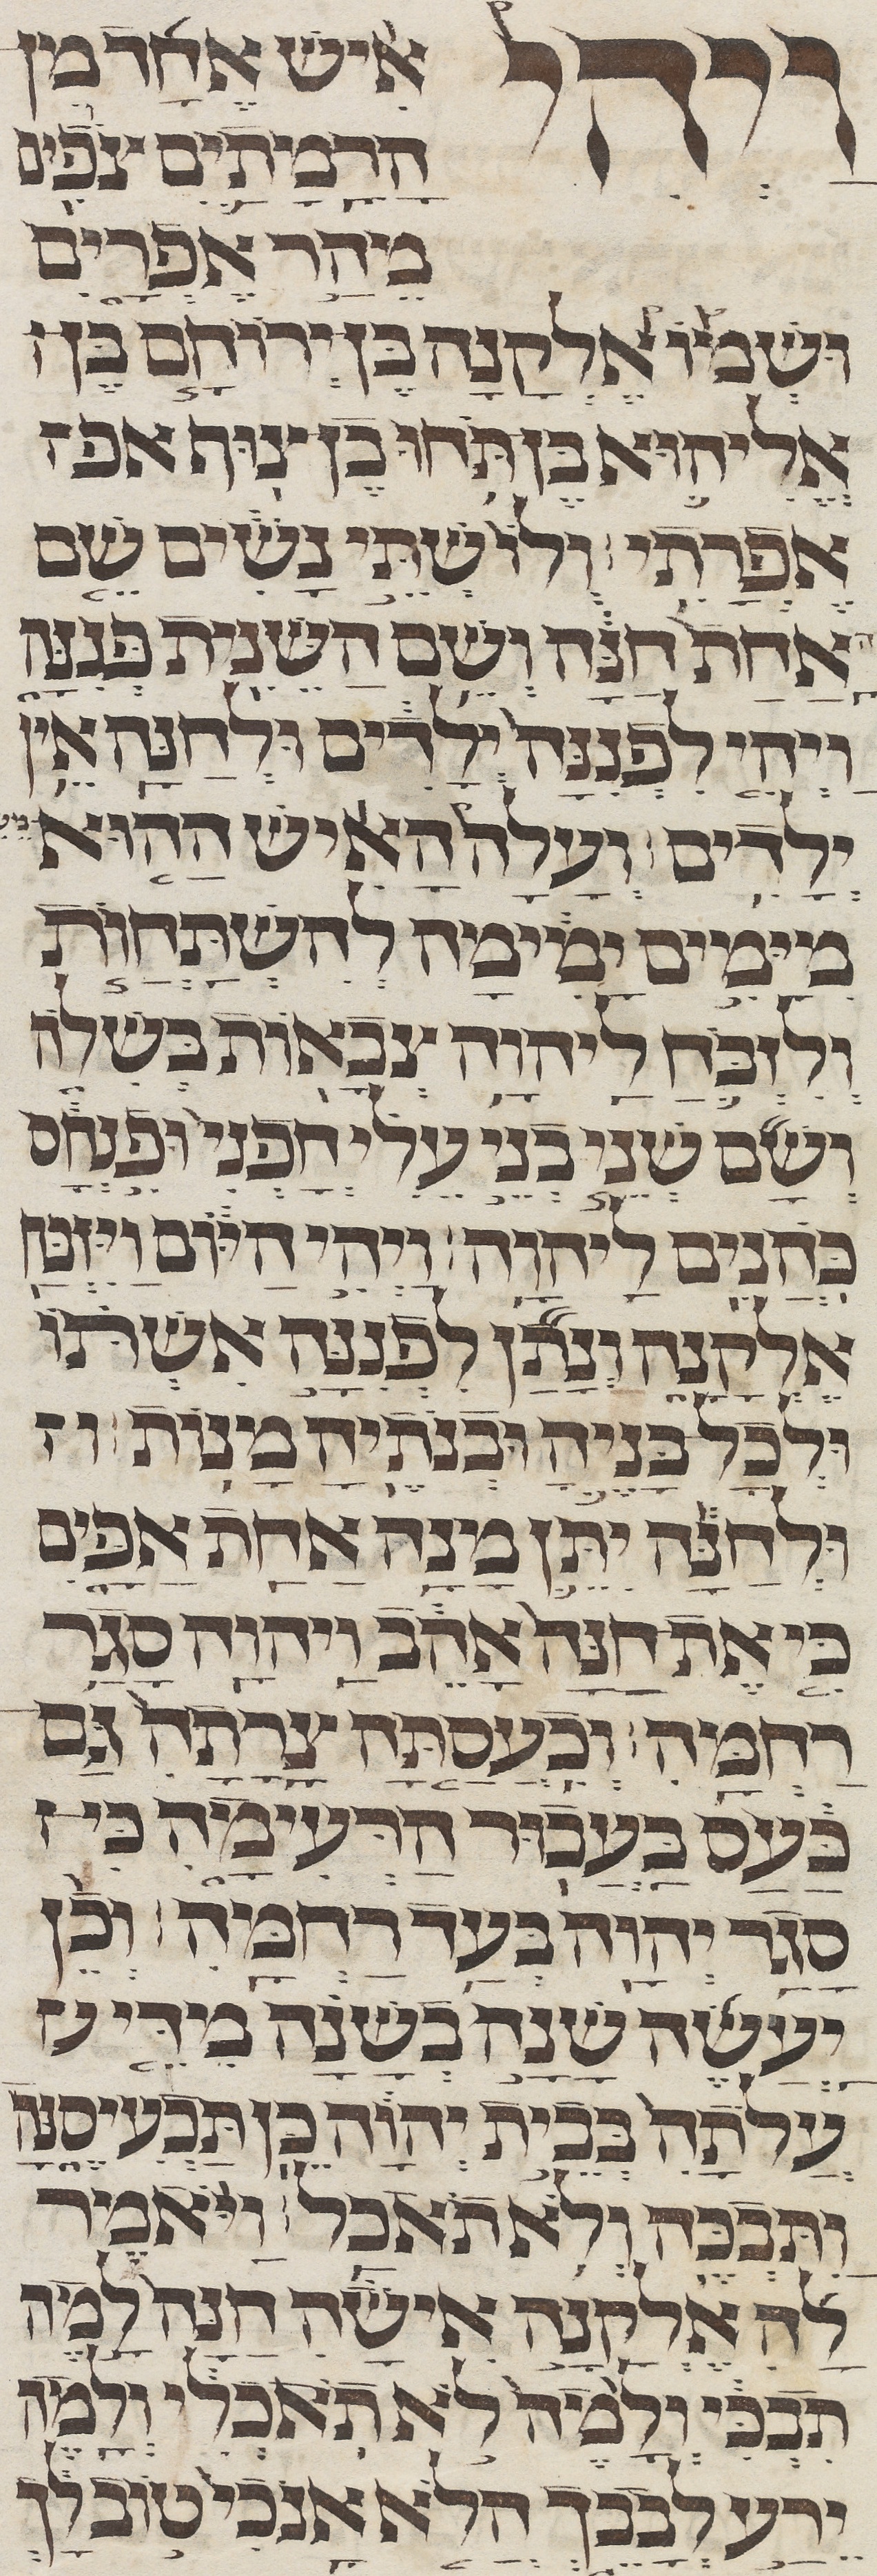 וַיְהִי אִישׁ אֶחָד מִן
הָרָמָתַיִם צוֹפִים
מֵהַר אֶפְרָיִם
וּשְׁמוֹ אֶלְקָנָה בֶּן יְרוֹחָם בֶּן
אֱלִיהוּא בֶּן תֹּחוּ בֶן צוּף אפ
אֶפְרָתִי׃ וְלוֹ שְׁתֵּי נָשִׁים שֵׁם
אַחַת חַנָּה וְשֵׁם הַשֵּׁנִית פְּנִנָּה
וַיְהִי לִפְנִנָּה יְלָדִים וּלְחַנָּה אֵין
יְלָדִים׃ וְעָלָה הָאִישׁ הַהוּא
מִיָּמִים יָמִימָה לְהִשְׁתַּחֲוֹת
וְלִזְבֹּחַ לַיהוָה צְבָאוֹת בְּשִׁלֹה
וְשָׁם שְׁנֵי בְנֵי עֵלִי חָפְנִי וּפִנְחָס
כֹּהֲנִים לַיהוָה׃ וַיְהִי הַיּוֹם וַיִּזְבַּח
אֶלְקָנָה וְנָתַן לִפְנִנָּה אִשְׁתּוֹ
וּלְכָל בָּנֶיהָ וּבְנֹתֶיהָ מָנוֹת׃ ו
וּלְחַנָּה יִתֵּן מָנָה אַחַת אַפָּיִם
כִּי אֶת חַנָּה אָהֵב וַיהוָה סָגַר
רַחְמָהּ׃ וְכִעֲסַתָּה צָרָתָהּ גַּם
כַּעַס בַּעֲבוּר הַרְּעִימָהּ כִּי
סָגַר יְהוָה בְּעַד רַחְמָהּ׃ וְכֵן
יַעֲשֶׂה שָׁנָה בְשָׁנָה מִדֵּי ע
עֲלֹתָהּ בְּבֵית יְהוָה כֵּן תַּכְעִיסֶנָּה
וַתִּבְכֶּה וְלֹא תֹאכַל׃ וַיֹּאמֶר
לָהּ אֶלְקָנָה אִישָׁהּ חַנָּה לָמֶה
תִבְכִּי וְלָמֶה לֹא תֹאכְלִי וְלָמֶה
יֵרַע לְבָבֵךְ הֲלֹא אָנֹכִי טוֹב לָךְ